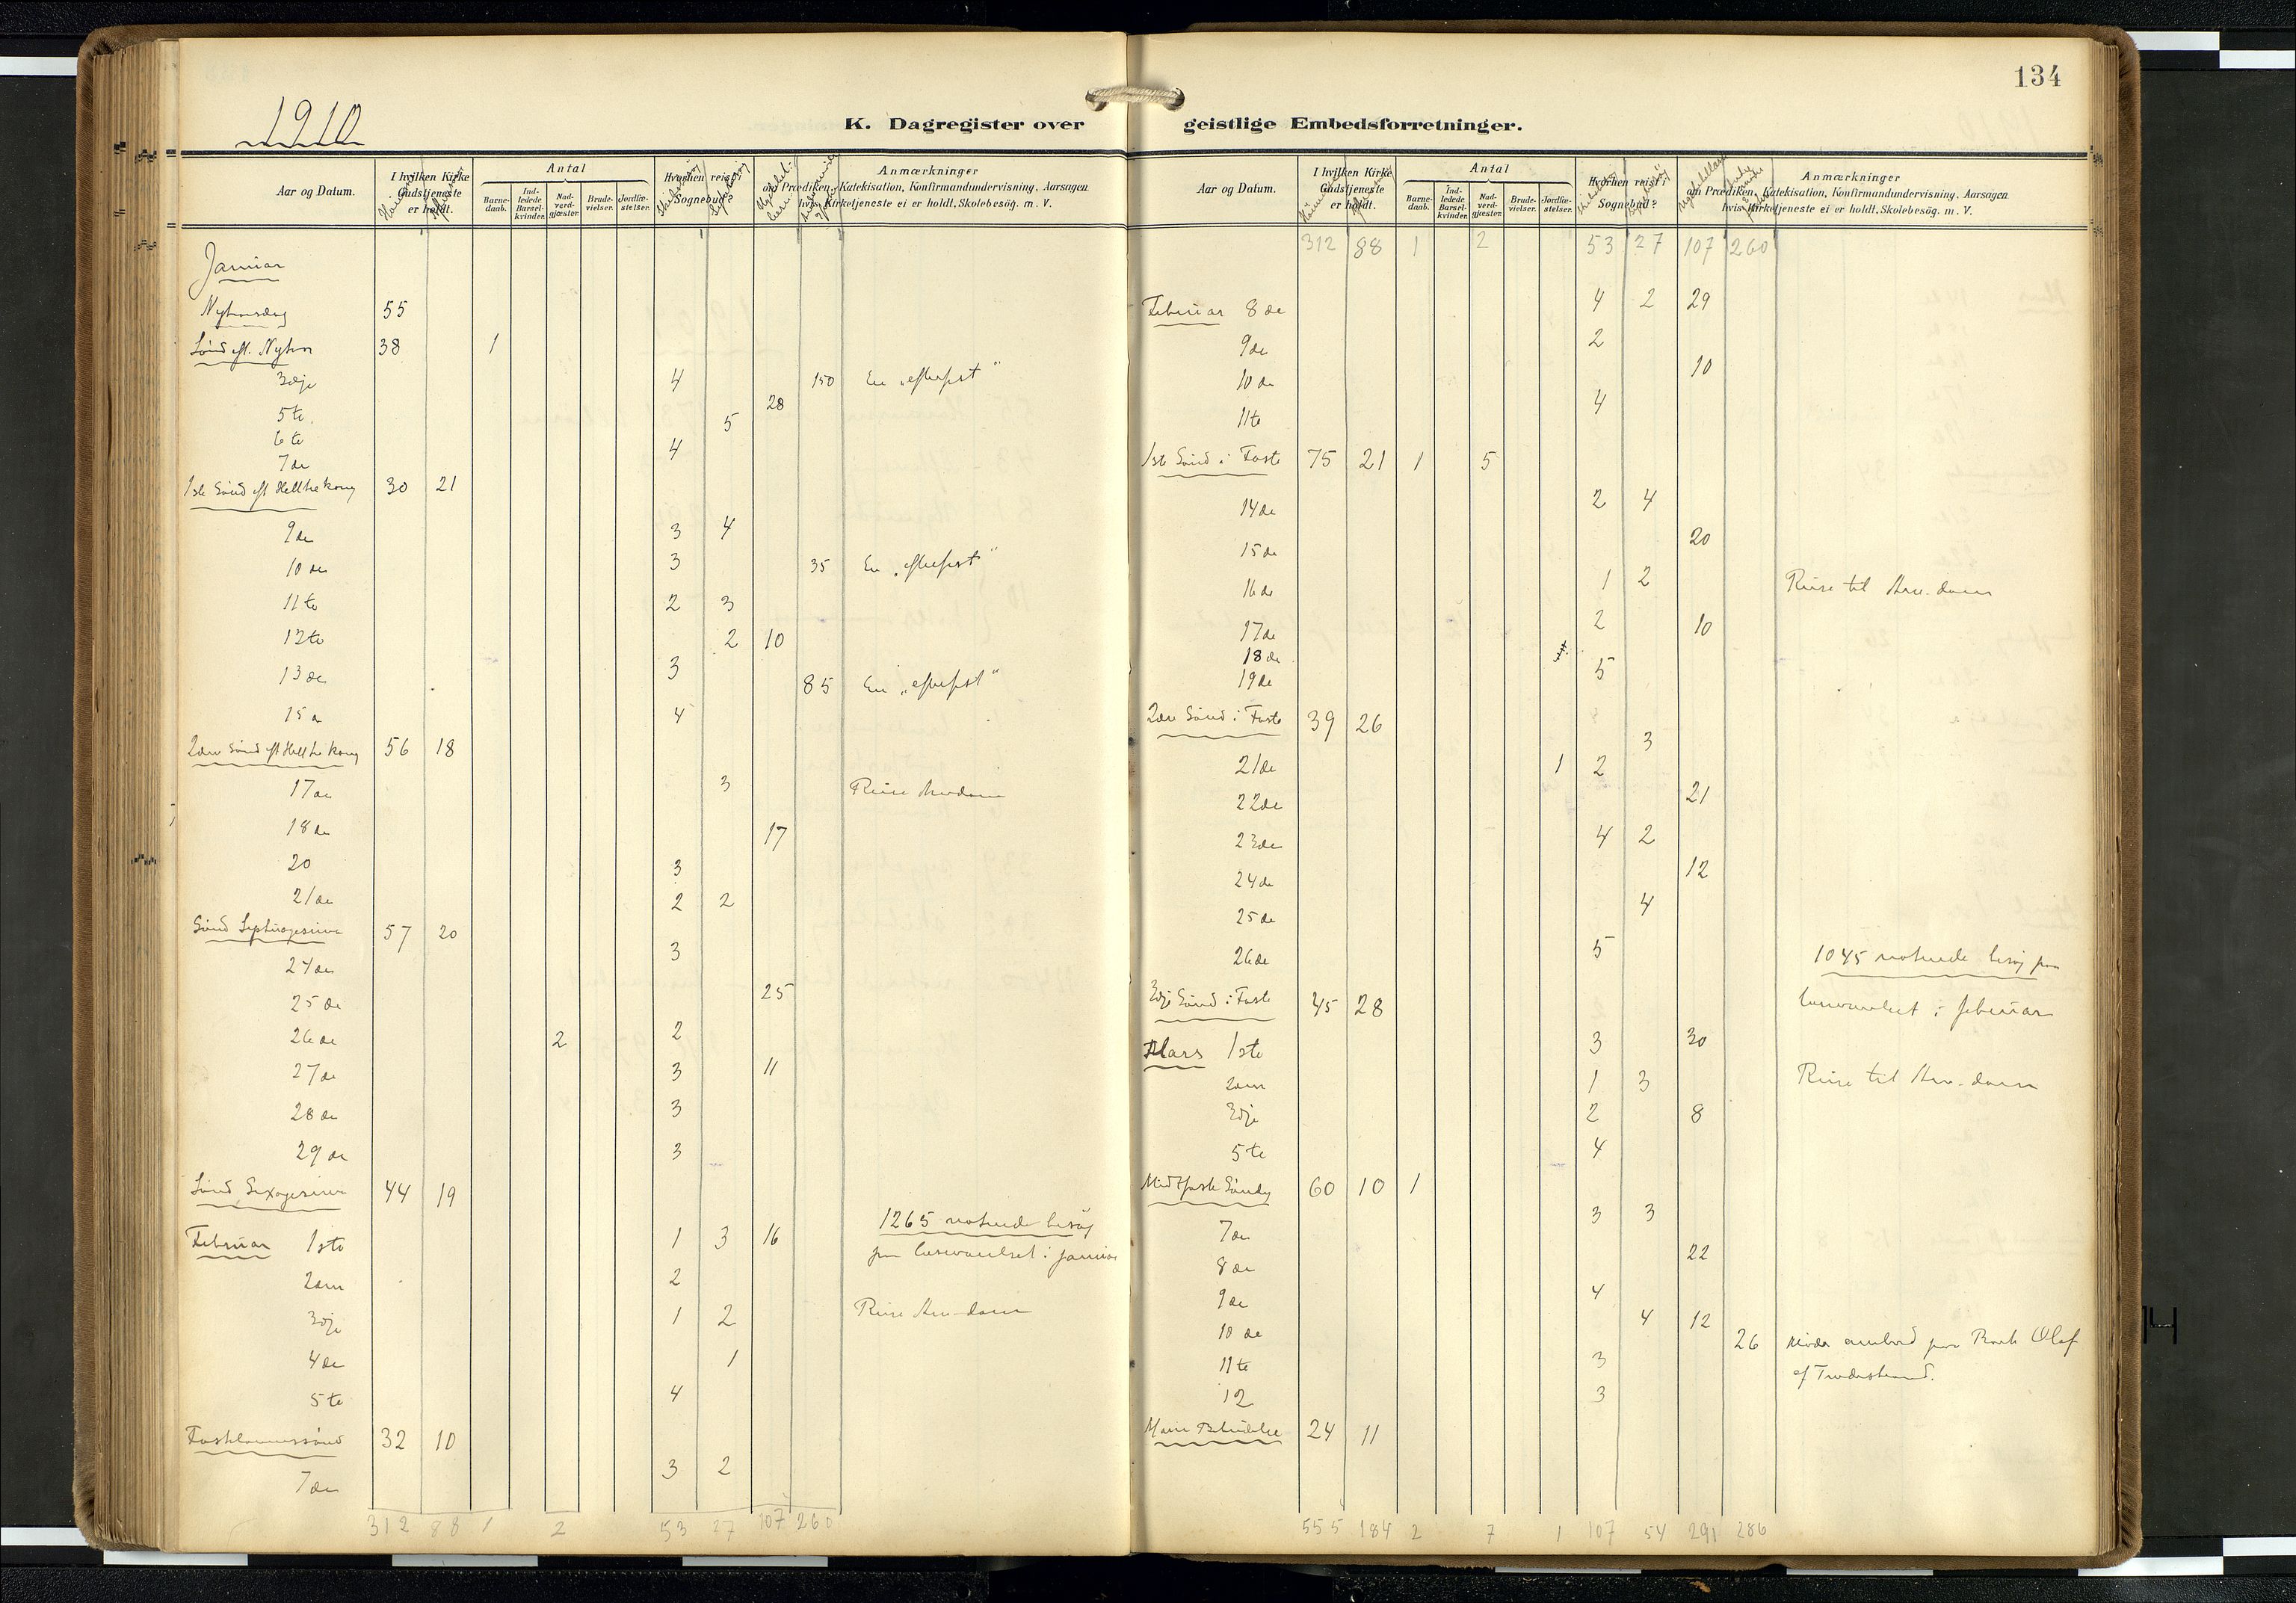 134
1910
K. Dagregister over geistlige Embedsforretninger.
Aar og Datum. I hvilken Kirke Gudstjeneste er holdt. Antal Barnedaab. Indledede Barselkvinder. Nadverdgjæster. Brudevielser. Jordfæstelser. Hvorhen reist i Sognebud? Anmærkninger om Prædiken, Katekisation, Konfirmandundervisning, Aarsagen hvis Kirketjeneste ei er holdt, Skolebesög. m. V.
Januar
Nytaarsdag 55
Sönd eft. Nytaar 38 1
3dje 4 150 En
28
5te 5
6te
7de 4
1ste Sönd eft Helltrekong 30 21
9de 3 4
10de 3 35 En
11te 2 3
12te 2 10
13de 3 85 En
15de 4
2den Sönd eft Helltrekong 56 18
17de 3 Reise
18de 17
20 3
21de 2 2
Sönd Septuagesima 57 20
24de 3
25de 25
26de 2 2
27de 3 11
28de 3
29de 3
Sönd Sexagesima 44 19
1265 noterede besög
Februar 1ste 1 3 16 paa læseværelset i januar
2den 2
3dje 1 2 Reise
4de 1
5te 4
Fastelavnssönd 32 10
7de 3 2
312 88 1 2 53 27 107 260
Aar og Datum. I hvilken Kirke Gudstjeneste er holdt. Antal Barnedaab. Indledede Barselkvinder. Nadverdgjæster. Brudevielser. Jordfæstelser. Hvorhen reist i Sognebud? Anmærkninger om Prædiken, Katekisation, Konfirmandundervisning, Aarsagen hvis Kirketjeneste ei er holdt, Skolebesög. m. V.
312 88 1 2 53 27 107 260
Februar 8de 4 2 29
9de 2
10de 10
11te 4
1ste Sönd i Faste 75 21 1 5
14de 2 4
15de 20
16de 1 2 Reise til
17de 2 10
18de
19de 5
2den Sönd i Faste 39 26
3
21de 1 2
22de 21
23de 4 2
24de 12
25de 4
26de 5 1045 noterede besög paa
3dje Sönd i Faste 45 28 læseværelset i februar
Mars 1ste 3 30
2den 1 3 Reise til
3dje 2 8
5te 4
Midtfaste Söndag 60 10 1
7de 3 3
8de 22
9de 4
10de 4 12
26 Möde ombord paa Bark Olaf
11te 3 af Tvedestrand.
12 3
Mariæ Bebudelse 24 11
555 184 2 7 1 107 54 291 286